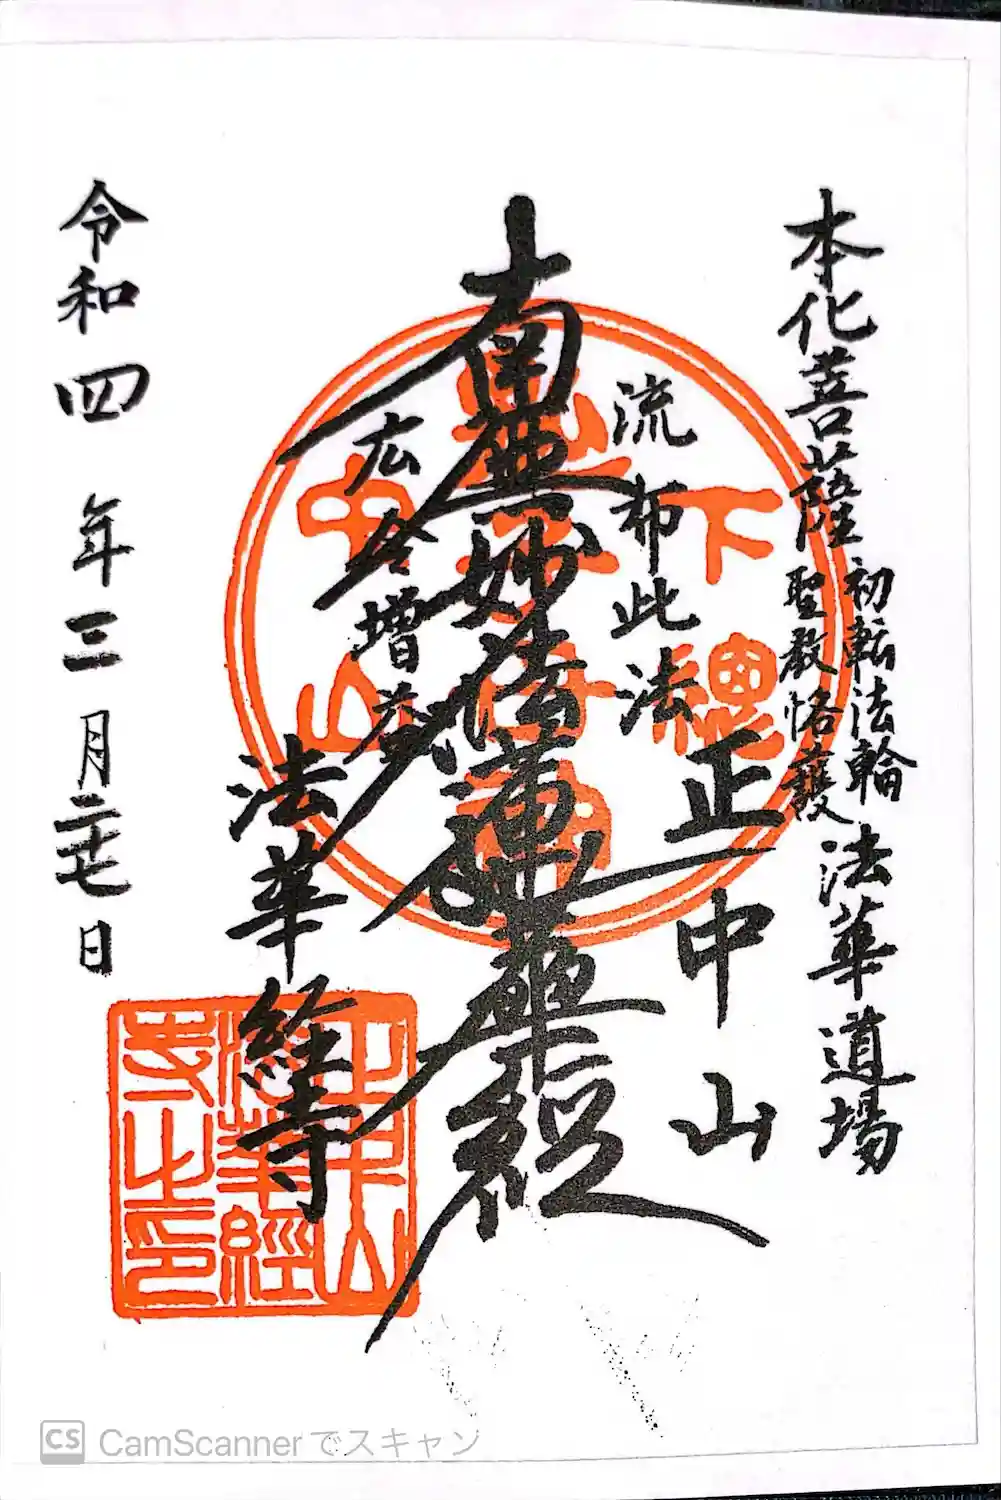 本化菩薩
初転法輪
聖教恪護
法華道場
流布此法
正中山
南無妙法蓮華経
広令増益
法華経寺
令和四年三月二十七日
下總
中山
正中山
法華經
寺之印
CS CamScannerでスキャン